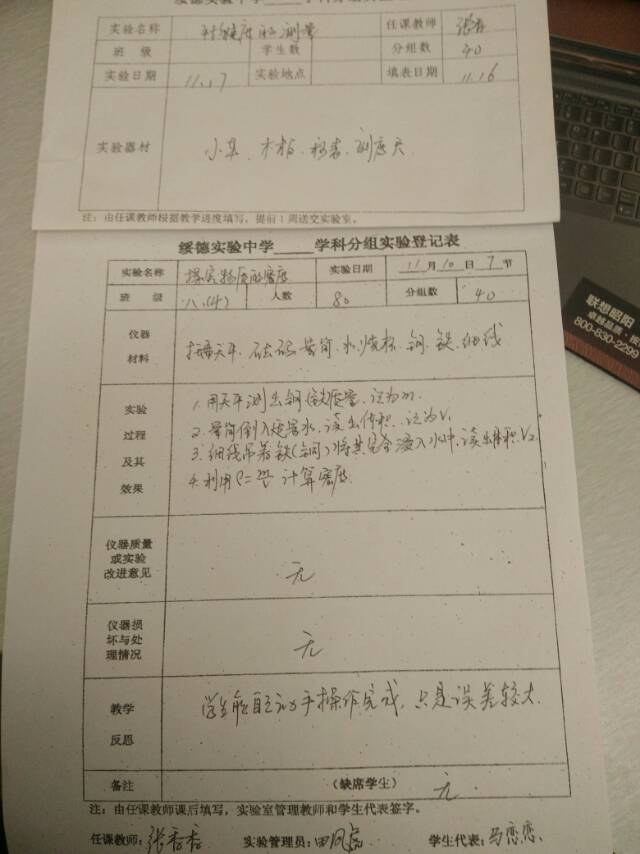 绥德实验中学____学科分组实验
实验名称 平均速度的测量 任课教师 张杏
班 级 学生数 分组数 40
实验日期 11.17 实验地点 填表日期 11.16
实验器材 小车、木板、秒表、刻度尺
注:由任课教师根据教学进度填写,提前1周送交实验室。
绥德实验中学____学科分组实验登记表
实验名称 探究物质的密度 实验日期 11月10日7节
班 级 八(4) 人数 80 分组数 40
仪器
材料 托盘天平、砝码、量筒、水、烧杯、铜、铁、细线
实验
过程
及其
效果
1.用天平测出铜(铁)质量,记为m.
2.量筒倒入适量水,读出体积,记为V₁
3.细线吊着铁(铜)将其完全浸入水中,读出体积V₂
4.利用ρ= 计算密度
仪器质量
或实验
改进意见
无
仪器损
坏与处
理情况
无
教学
反思
学生能自主动手操作完成,只是误差较大.
备注 (缺席学生) 无
注:由任课教师课后填写,实验室管理教师和学生代表签字。
任课教师:张杏杏 实验管理员:田 学生代表:马恋恋
联想昭阳
卓越品质
800-830-2299